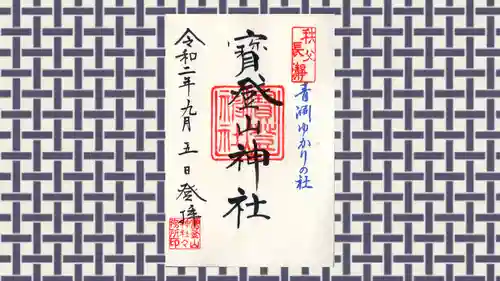 秩父
長瀞
青淵ゆかりの社
寳登山神社
寳登山神社
令和二年九月五日登拝